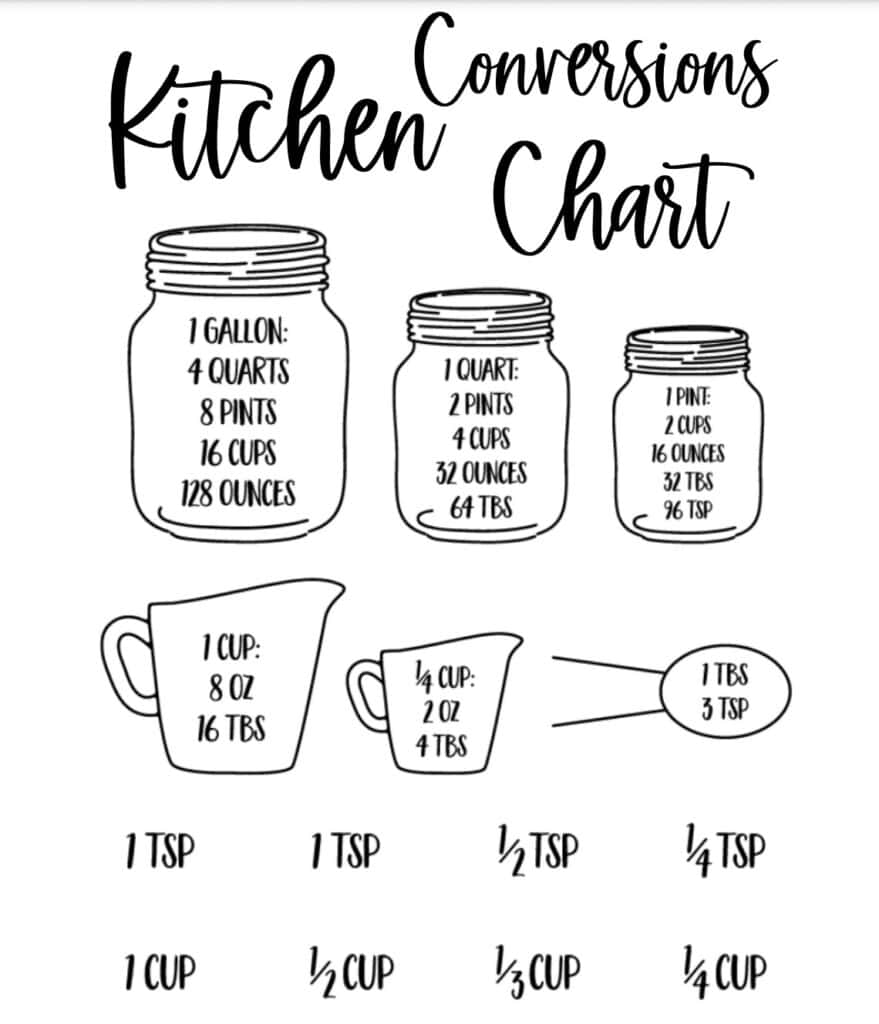 Kitchen Conversions
Chart
1 GALLON:
4 QUARTS
8 PINTS
16 CUPS
128 OUNCES
1 QUART:
2 PINTS
4 CUPS
32 OUNCES
64 TBS
1 PINT:
2 CUPS
16 OUNCES
32 TBS
96 TSP
1 CUP:
8 OZ
16 TBS
1/4 CUP:
2 OZ
4 TBS
1 TBS
3 TSP
1 TSP 1 TSP 1/2 TSP 1/4 TSP
1 CUP 1/2 CUP 1/3 CUP 1/4 CUP